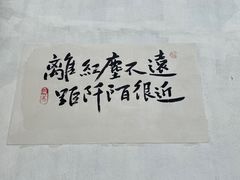 離紅塵不遠
距阡陌很近